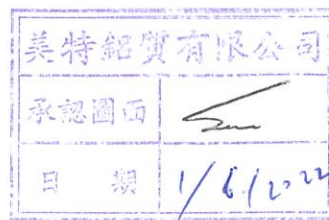 美特鋁質有限公司
承認圖面
日 期 1/6/2022